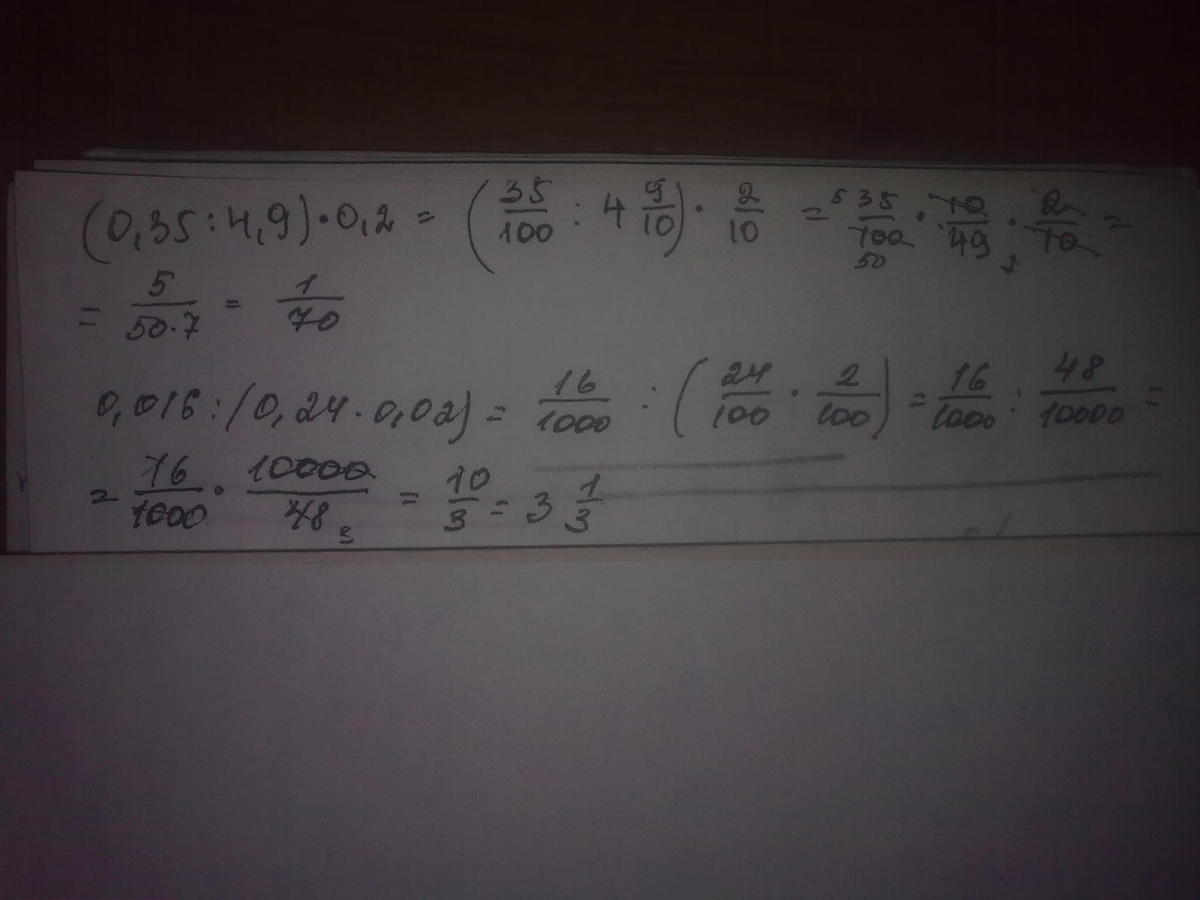 (0,35:4,9)·0,2 = (35/100 : 4 9/10) · 2/10 = 5 35/100 50 · 10/49 7 · 2/10 =
= 5/50·7 = 1/70
0,016:(0,24·0,02) = 16/1000 : (24/100 · 2/100) = 16/1000 : 48/10000 =
= 16/1000 · 10000/48 3 = 10/3 = 3 1/3